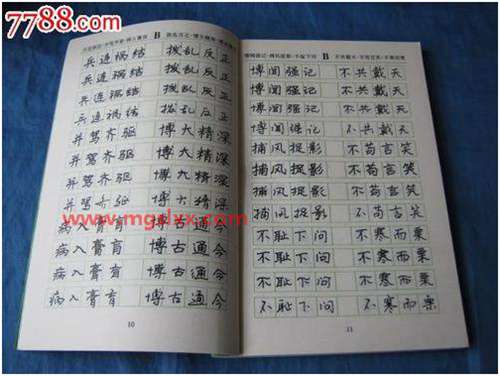 7788.com
兵连祸结·并驾齐驱·病入膏肓 B 拨乱反正·博大精深·博古通今
兵连祸结 拨乱反正
兵连祸结 拨乱反正
兵连祸结 拨乱反正
兵连祸结 拨乱反正
并驾齐驱 博大精深
并驾齐驱 博大精深
并驾齐驱 博大精深
并驾齐驱 博大精深
病入膏肓 博古通今
病入膏肓 博古通今
病入膏肓 博古通今
病入膏肓 博古通今
10
博闻强记·捕风捉影·不耻下问 B 不共戴天·不苟言笑·不寒而栗
博闻强记 不共戴天
博闻强记 不共戴天
博闻强记 不共戴天
博闻强记 不共戴天
捕风捉影 不苟言笑
捕风捉影 不苟言笑
捕风捉影 不苟言笑
捕风捉影 不苟言笑
不耻下问 不寒而栗
不耻下问 不寒而栗
不耻下问 不寒而栗
不耻下问 不寒而栗
11